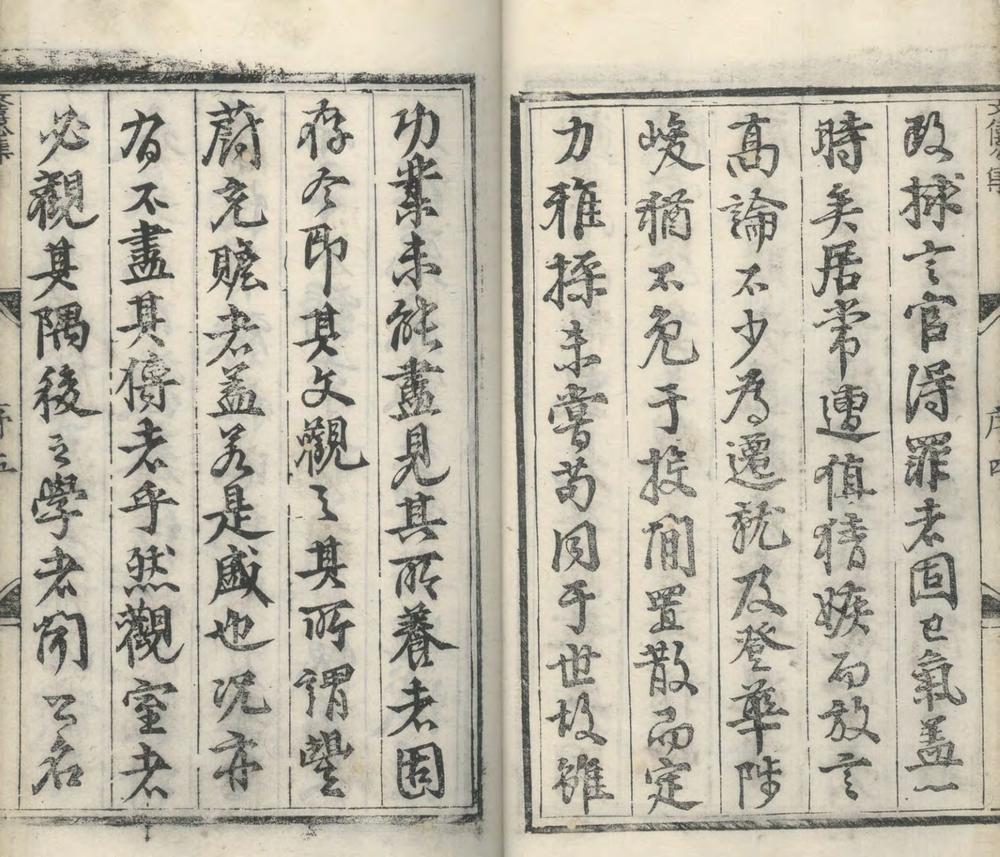 改捄言官得罪者固已氣蓋一
時矣居常遭值猜嫉而放言
高論不少為遷就及登華陟
峻猶不免于投閒置散而定
力雅操未嘗苟同于世故雖
功業未能盡見其所養者固
存今即其文觀之其所謂豐
蔚充贍者蓋若是盛也况亦
有不盡其傳者乎然觀室者
必觀其隅後之學者聞公名
序四
序五